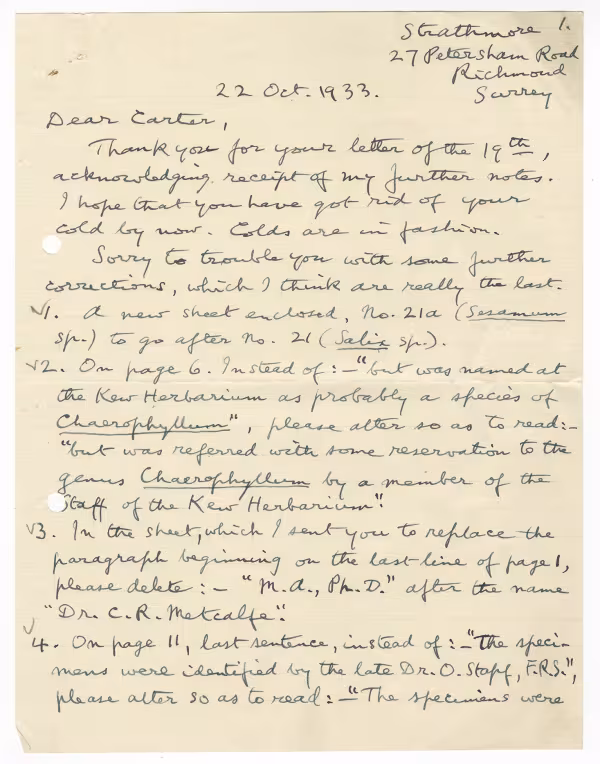 Strathmore 1.
27 Petersham Road
Richmond
Surrey
22 Oct. 1933.
Dear Carter,
Thank you for your letter of the 19th,
acknowledging receipt of my further notes.
I hope that you have got rid of your
cold by now. Colds are in fashion.
Sorry to trouble you with some further
corrections, which I think are really the last.
√1. A new sheet enclosed, No. 21a (Sesamum
sp.) to go after No. 21 (Salix sp.).
√2. On page 6. Instead of:—"but was named at
the Kew Herbarium as probably a species of
Chaerophyllum", please alter so as to read:—
"but was referred with some reservation to the
genus Chaerophyllum by a member of the
Staff of the Kew Herbarium".
√3. In the sheet, which I sent you to replace the
paragraph beginning on the last line of page 1,
please delete:— "M.A., Ph.D." after the name
"Dr. C. R. Metcalfe".
√
4. On page 11, last sentence, instead of:—"The speci-
mens were identified by the late Dr. O. Stapf, F.R.S.",
please alter so as to read:—"The specimens were